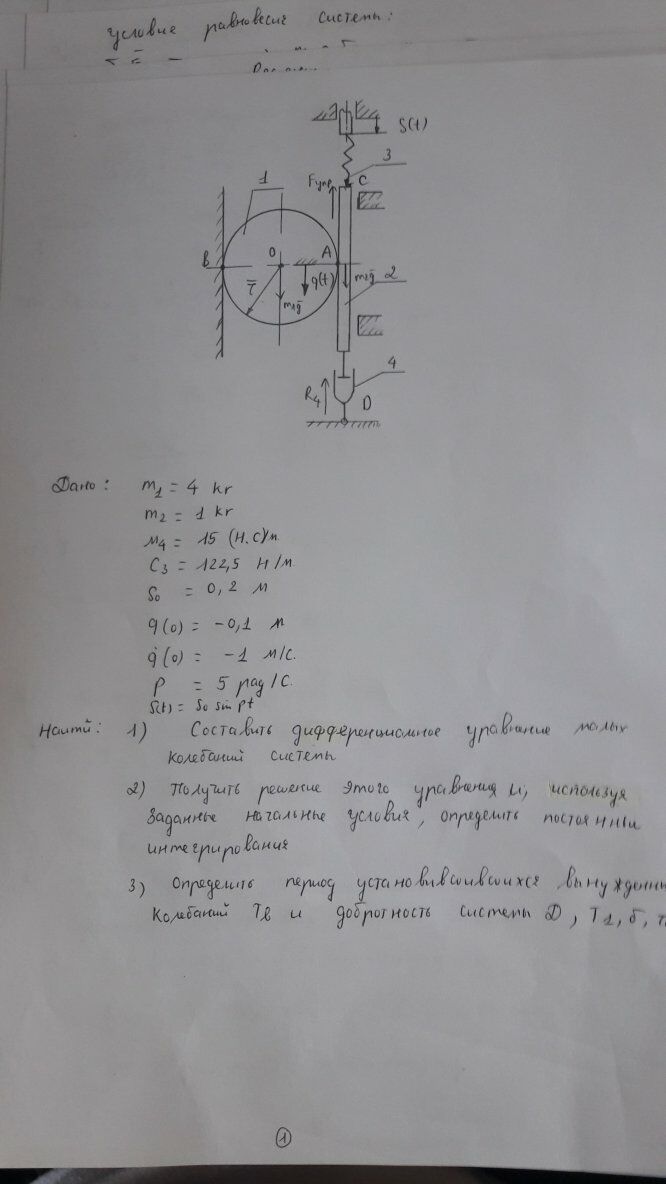 условие равновесия системы:
S(t)
3
1
Fупр
C
B
O
A
q(t)
m₂g̅
2
r̅
m₁g̅
4
R₄
D
Дано: m₁ = 4 кг
m₂ = 1 кг
μ₄ = 15 (Н.с)/м
C₃ = 122,5 Н/м
S₀ = 0,2 м
q(0) = -0,1 м
q̇(0) = -1 м/с.
p = 5 рад/с.
S(t) = S₀ sin pt
Наити: 1) Составить дифференциальное уравнение малых
колебаний системы
2) Получить решение этого уравнения и, используя
заданные начальные условия, определить
интегрирования
3) Определить период
колебаний Tв и добротность системы D, T₁, δ,
1